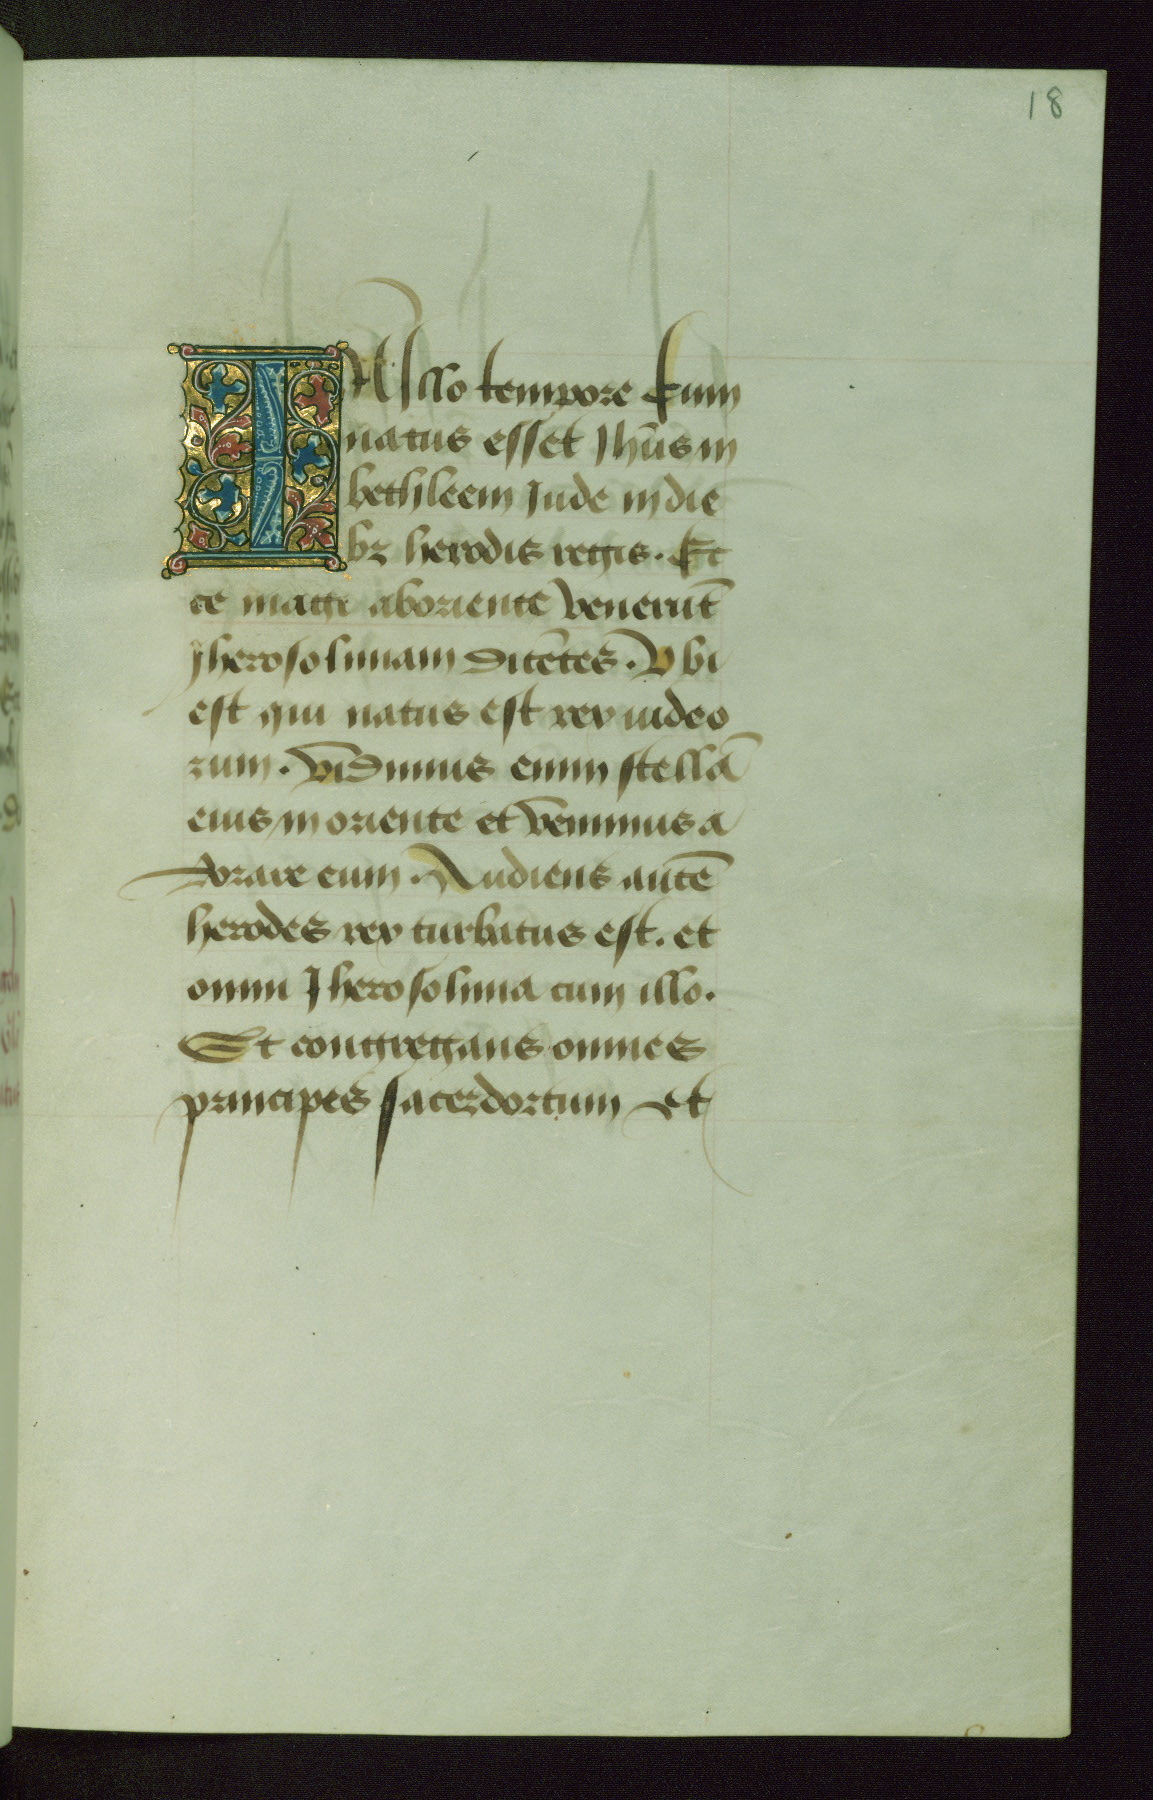 18
IN illo tempore Cum
natus esset Jhūs in
bethleem Jude in die
bz herodis regis. Ec
ce magi ab oriente venerūt
Jherosolimam dicētes. Vbi
est qui natus est rex iudeo
rum. Vidimus enim stellā
eius in oriente et venimus a
dorare eum. Audiens autē
herodes rex turbatus est. et
omni Jherosolima cum illo.
Et congregans omnes
principes sacerdortum et